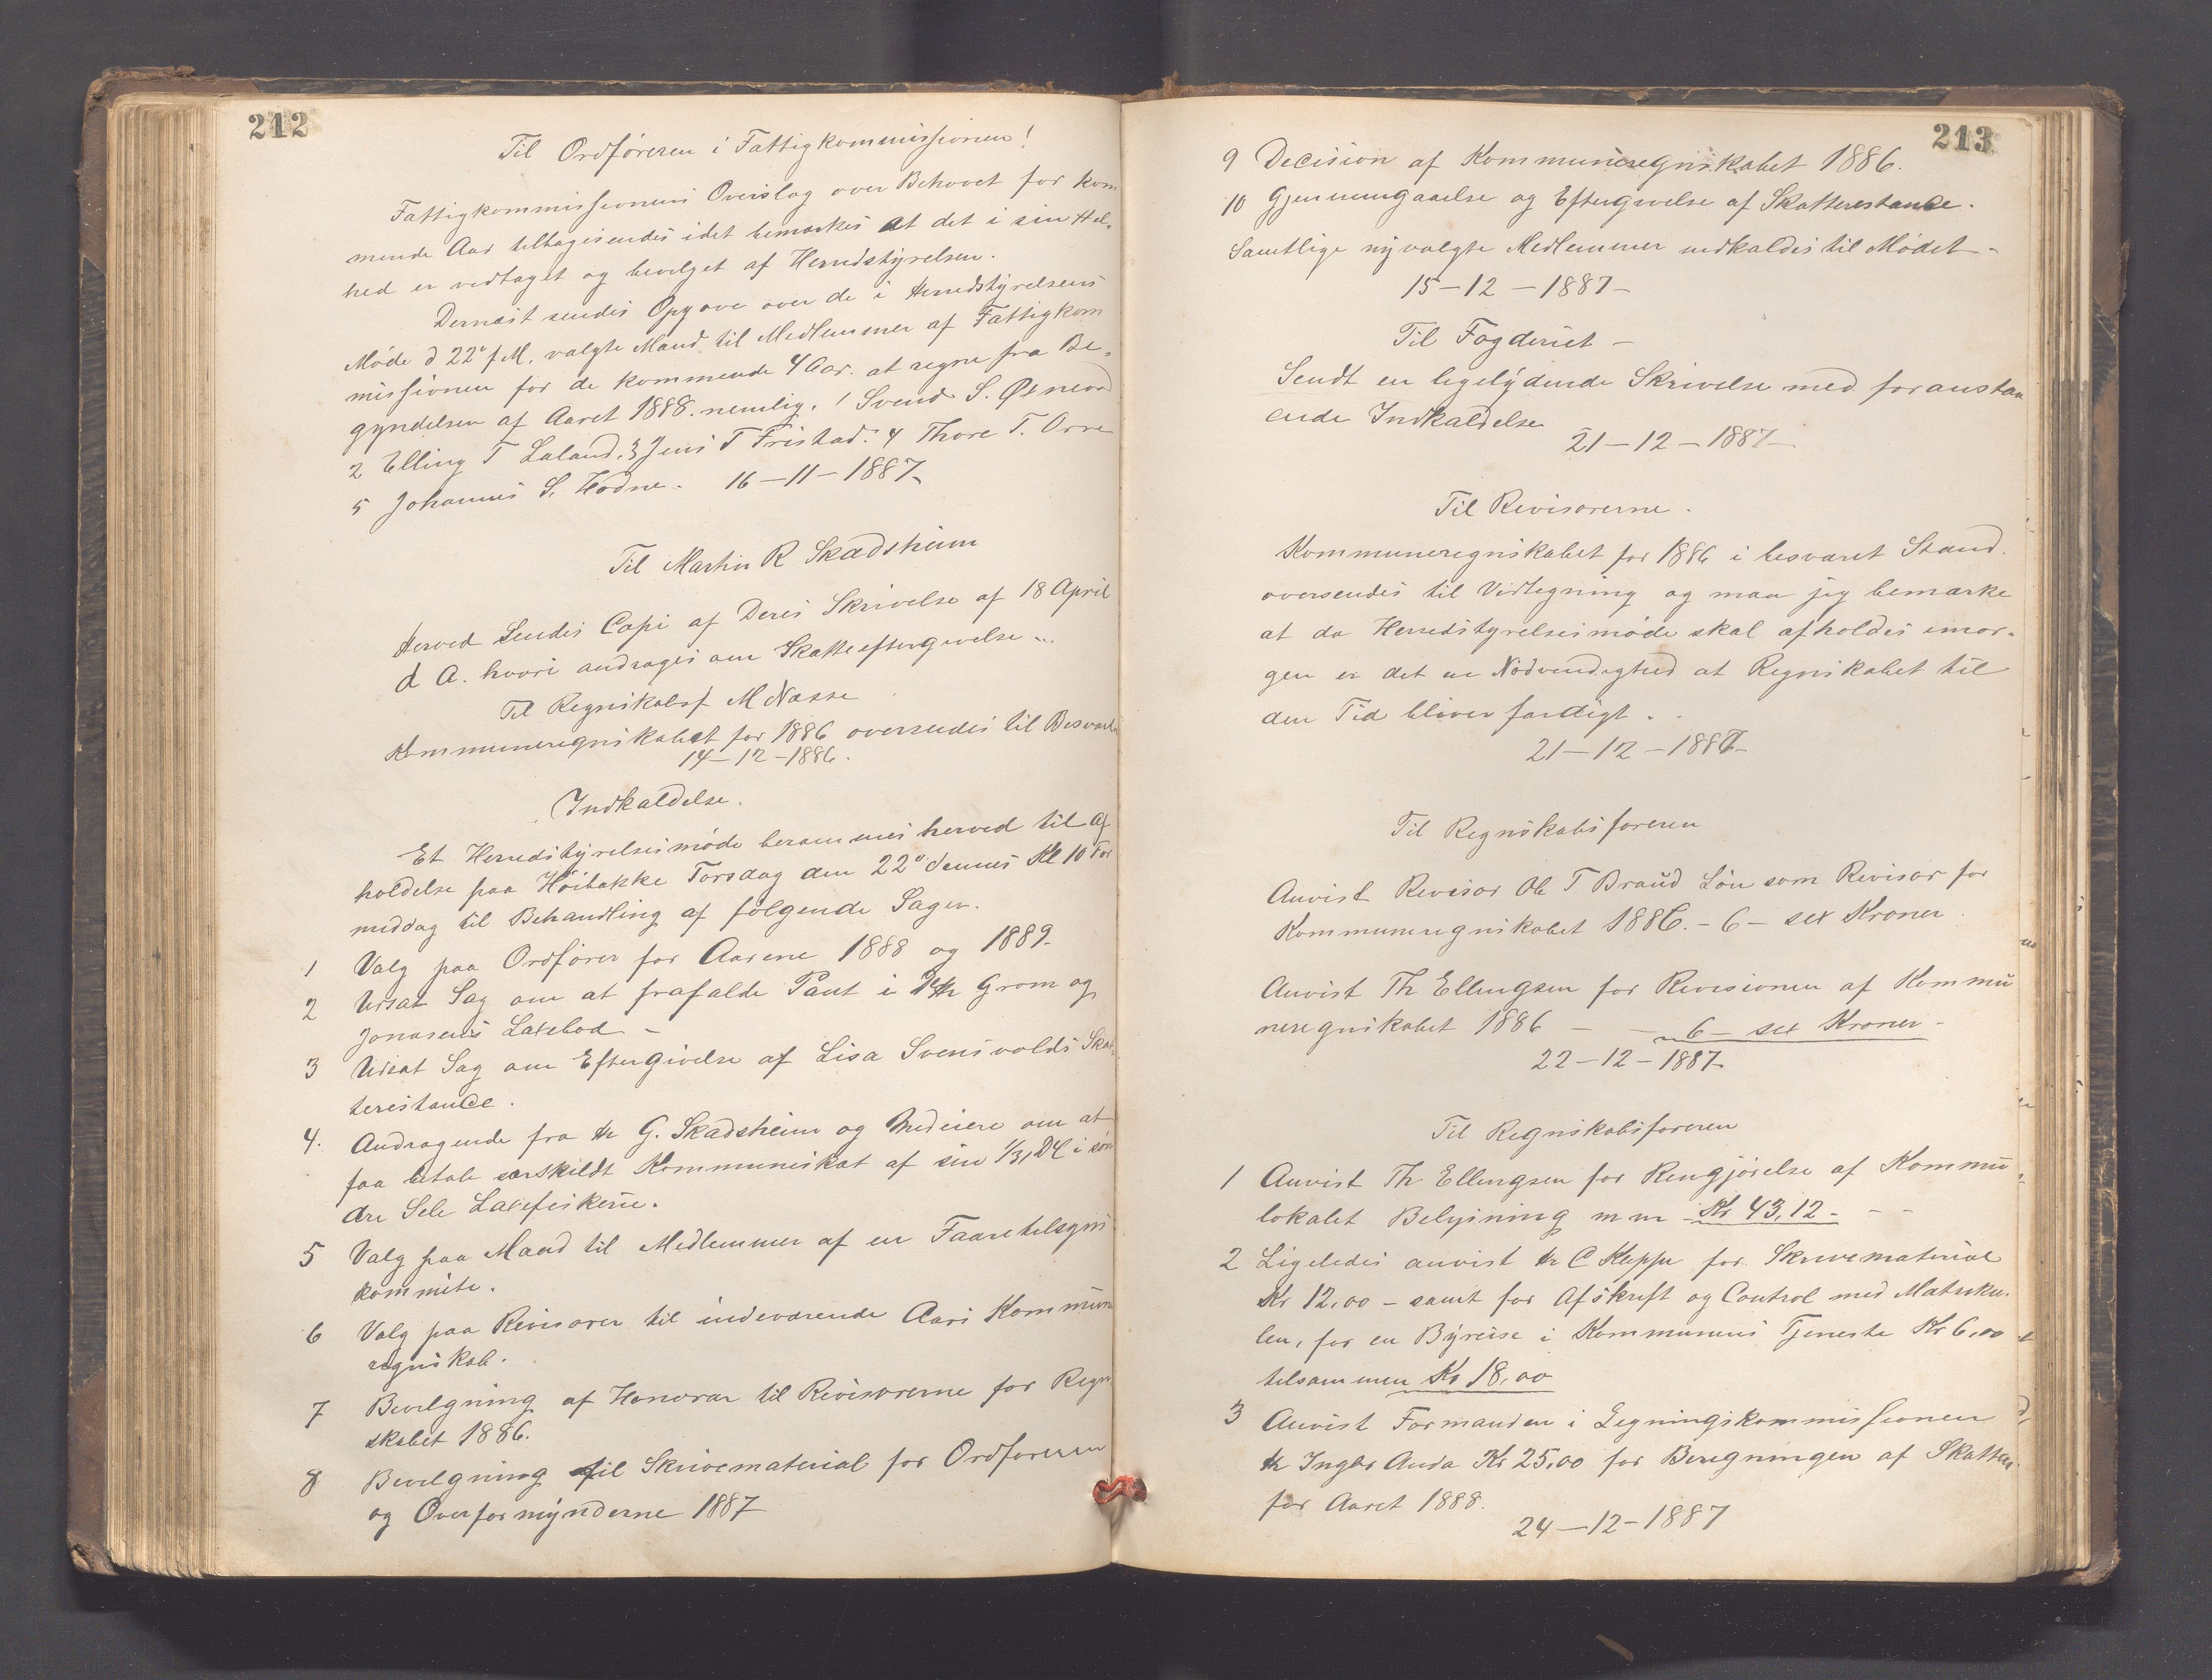 212
Til Ordføreren i Fattigkommissionen!
Fattigkommissionens Overslag over Behovet for kom
mende Aar tilbagesendes idet bemærkes at det i sin Hel-
hed er vedtaget og bevilget af Herredstyrelsen.
Dernæst sendes Opgave over de i Herredstyrelsens
Møde d 22de f M. valgte Mænd til Medlemmer af Fattigkom
missionen for de kommende 4 Aar. at regne fra Be-
gyndelsen af Aaret 1888. nemlig. 1 Svend S. Øxnevad
2 Elling T Laland. 3 Jens T Fristad. 4 Thore T. Orre
5 Johannes S. Hodne. 16-11-1887
Til Martin R Skadsheim
Herved Sendes Copi af Deres Skrivelse af 18 April
d A. hvori andrages om Skatteeftergivelse ...
Til Regnskabsf M Næsse
Kommuneregnskabet for 1886 oversendes til Besvarelse
14-12-1886.
Indkaldelse.
Et Herredstyrelsesmøde berammes herved til Af
holdelse paa Høibakke Torsdag den 22de dennes Kl 10 For
middag til Behandling af følgende Sager.
1 Valg paa Ordfører for Aarene 1888 og 1889.
2 Udsat Sag om at frafalde Pant i Grom og
Jonasens Laxebod -
3 Udsat Sag om Eftergivelse af Lisa Svensvolds Skat-
terestance.
4. Andragende fra Hr G. Skadsheim og Medeiere om at
faa betale særskildt Kommuneskat af sin 1/31 Del i søn
dre Sele Laxefiskerie.
5 Valg paa Mænd til Medlemmer af en Faaretilsyns
kommite.
6 Valg paa Revisorer til indeværende Aars Kommune
regnskab.
7 Bevilgning af Honorar til Revisorerne for Regn
skabet 1886.
8 Bevilgning til Skrivematerial for Ordføreren
og Overformynderne 1887
213
9 Decision af Kommuneregnskabet 1886.
10 Gjennemgaaelse og Eftergivelse af Skatterestance.
Samtlige nyvalgte Medlemmer indkaldes til Mødet -
15-12-1887-
Til Fogderiet -
Sendt en ligelydende Skrivelse med foranstaa
ende Indkaldelse
21-12-1887-
Til Revisorerne.
Kommuneregnskabet for 1886 i besvaret Stand.
oversendes til Vidtegning og maa jeg bemærke
at da Herredstyrelsesmøde skal afholdes imor-
gen er det en Nødvendighed at Regnskabet til
den Tid bliver færdigt.
21-12-1887-
Til Regnskabsføreren
Anvist Revisor Ole T Braud Løn som Revisor for
Kommuneregnskabet 1886. - 6 - sex Kroner
Anvist Th Ellingsen for Revisionen af Kommu
neregnskabet 1886 - - 6 - sex Kroner -
22-12-1887-
Til Regnskabsføreren
1 Anvist Th Ellingsen for Rengjørelse af Kommu
lokalet Belysning m m Kr 43,12 - - -
2 Ligeledes anvist Hr C Kleppe for Skrivematerial
Kr 12,00 - samt for Afskrift og Control med Matriku-
len, for en Byreise i Kommunens Tjeneste Kr 6,00
tilsammen Kr 18,00
3 Anvist Formanden i Ligningskommissionen
Hr Ingbr Anda Kr 25,00 for Beregningen af Skatten
for Aaret 1888.
24-12-1887